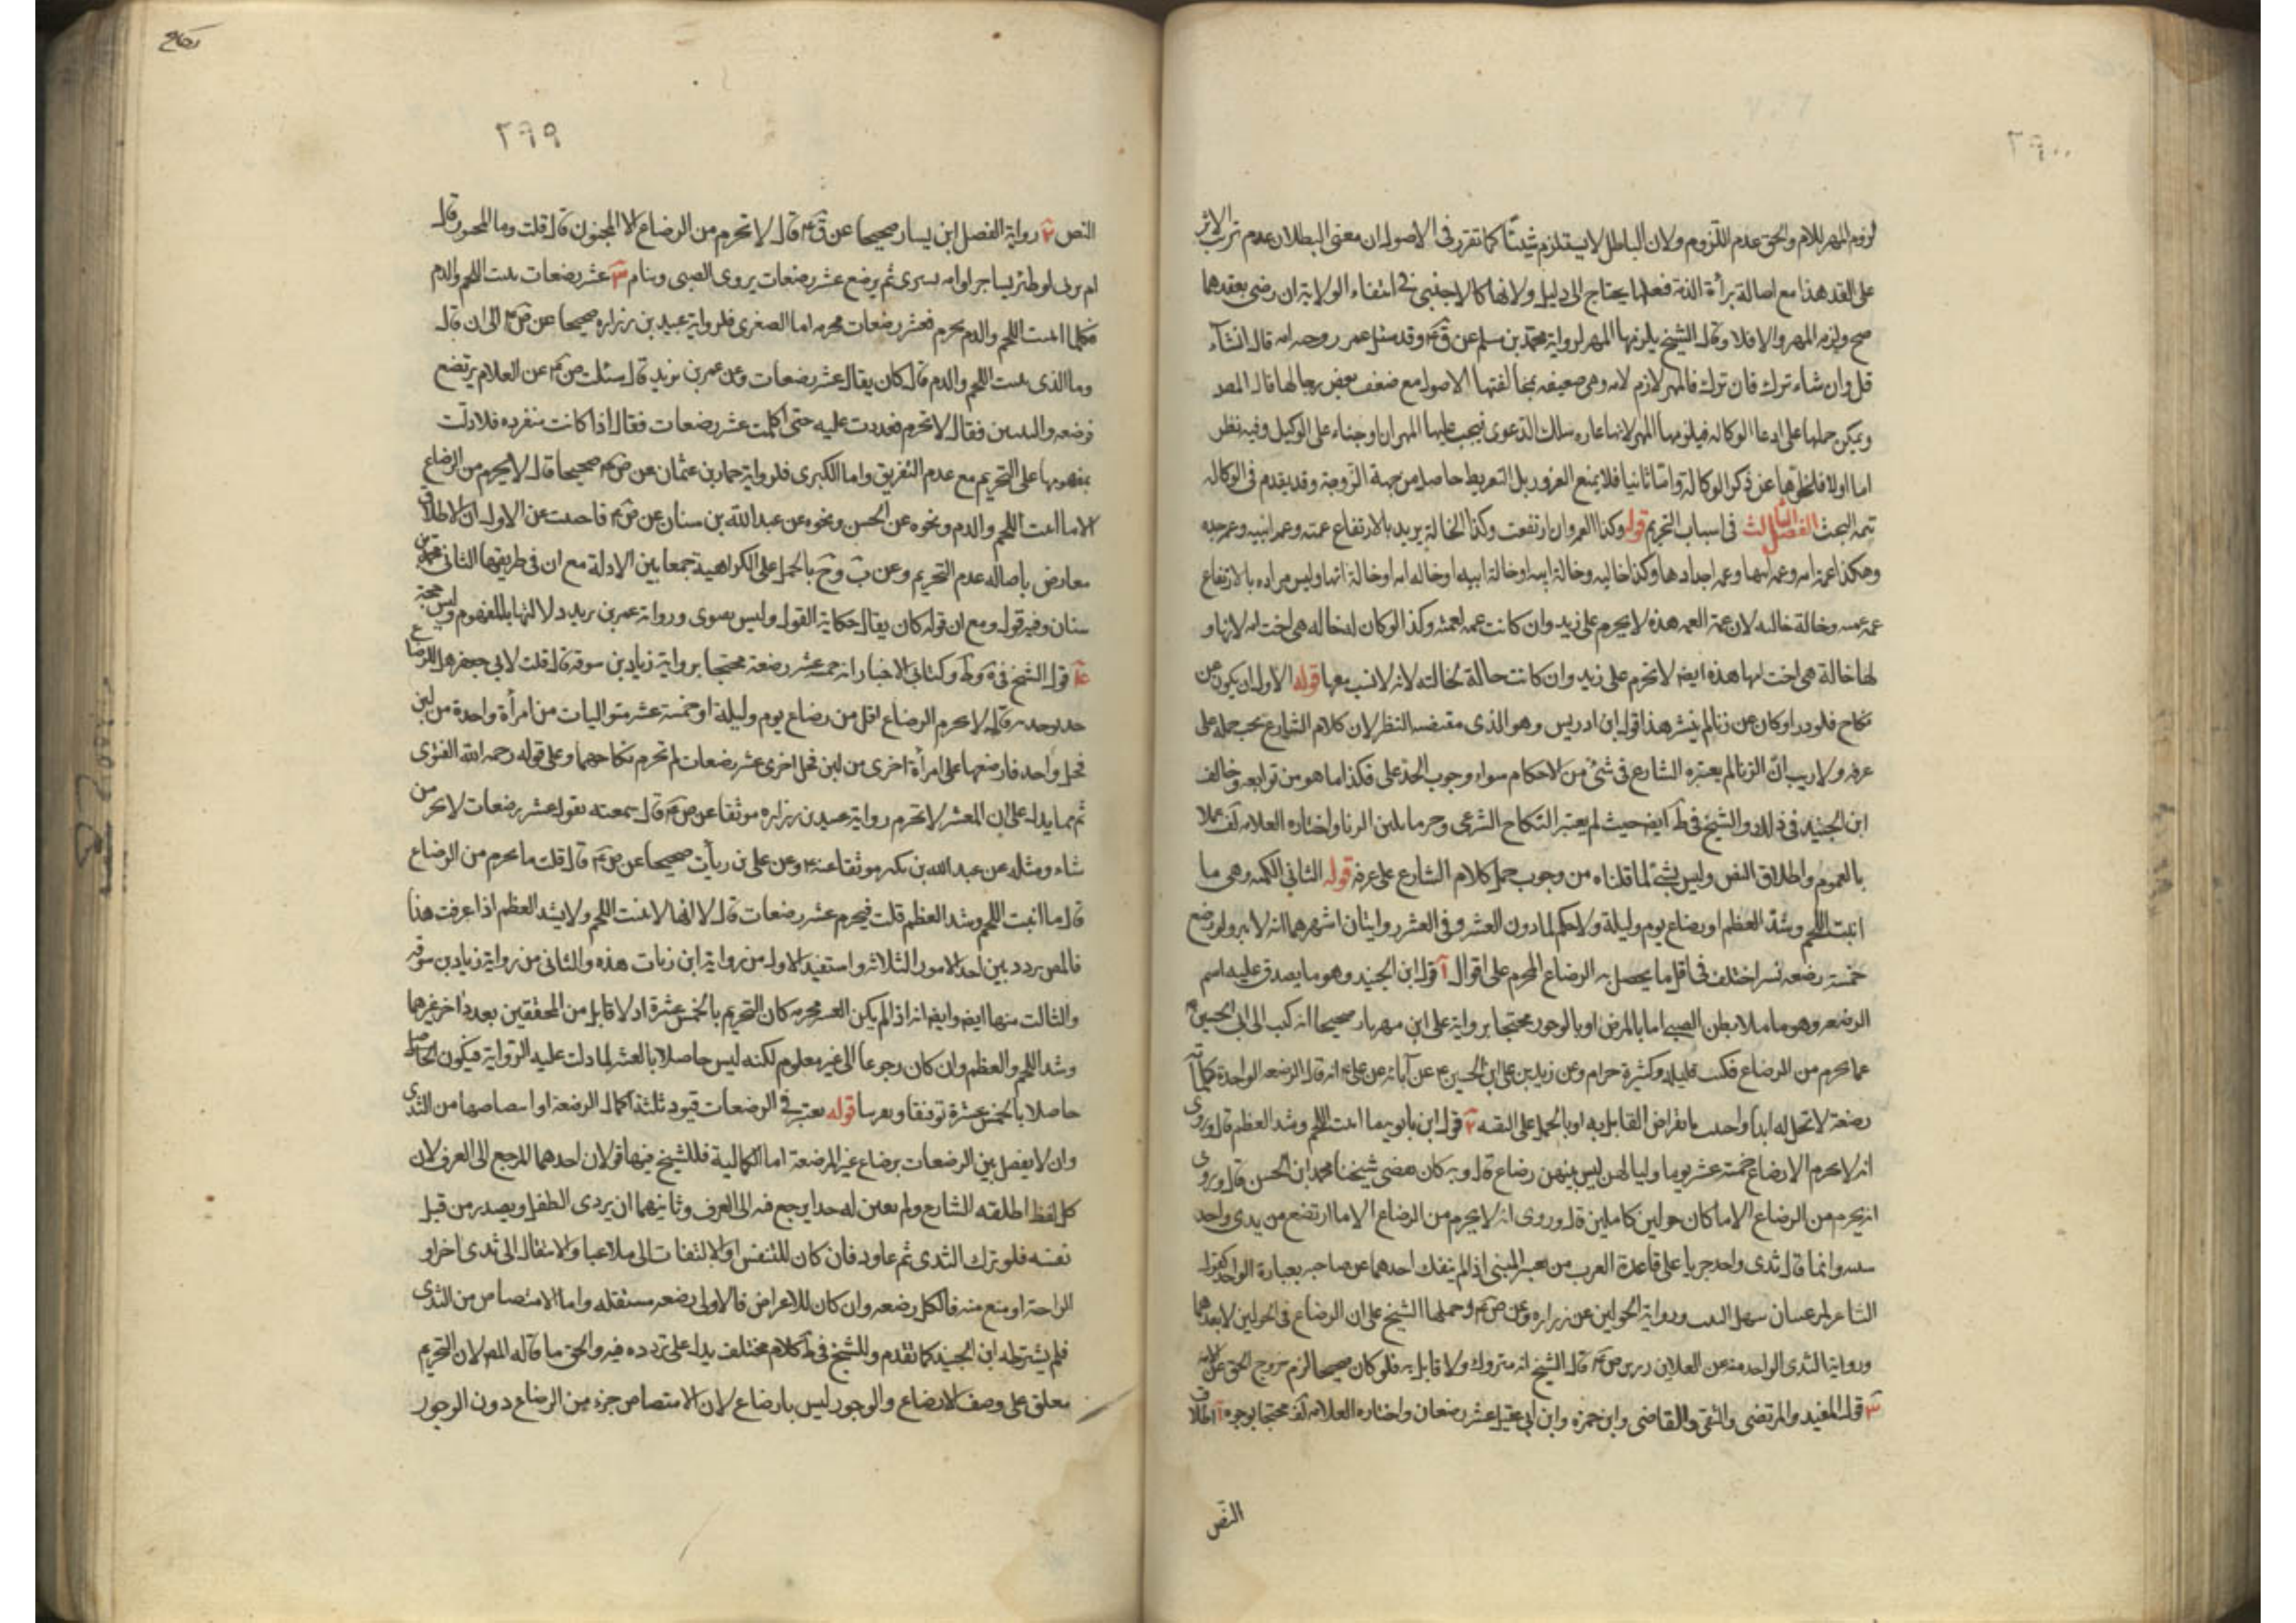 ٢٩٠٠
لزوم المهر للام والحق عدم اللزوم ولان الباطل لا يستلزم شيئا كما تقرر في الاصول ان معنى البطلان عدم ترتب الاثر
على العقد هذا مع اصالة برأة الذمة فعلها يحتاج الى دليل ولانها كالاجنبي في انتفاء الولاية ان رضى بعقدها
صح ولزم المهر والا فلا وقال الشيخ يلزمها المهر لرواية محمد بن مسلم عن ق ع وقد سئل عن روجه امه قال انشآء
قبل وان شاء ترك فان ترك فالمهر لازم لامه وهى ضعيفه بمخالفتها الاصول مع ضعف بعض رجالها قال المصـ
ويمكن حملها على ادعا الوكاله فيلزمها المهر لانها الدعوى فيجب عليها المهر ان او جناء على الوكيل وفيه نظر
اما اولا فلخلوها عن ذكر الوكالة واما ثانيا فلا يمنع الغرور بل التفريط حاصل من جهة الزوجة وقد يقدم في الوكاله
تتمه البحث الفصل الثالث في اسباب التحريم قوله وكذا العم وان ارتفعت وكذا الخالة يريد بالارتفاع عمته وعمه ابيه وعم جده
وهكذا عمة امه وعمه امها وعمه اجدادها وكذا خاليه وخالة ابيه او خالة ابيه او خاله امه او خالة امها وليس مراده بالارتفاع
عمه عمه وخالة خالته لان عمة العمه هذه لا يحرم على زيد وان كانت عمه لعمته وكذا لو كان له خاله هى اخت امه لابها و
لها خالة هى اخت امها هذه ايضا لا تحرم على زيد وان كانت خالة لخالته لانه لا نسب معها قوله الاول ان يكون عن
نكاح فلو در او كان عن زنا لم ينشر هذا قول ابن ادريس وهو الذى مقتضى النظر لان كلام الشارع يجب حمله على
عرفه ولا ريب ان الزنا لم يعتبره الشارع في شئ من الاحكام سواء وجوب الحد على فكذا ما هو من توابعه وخالف
ابن الجنيد في ذلك والشيخ في ط ايضا حيث لم يعتبر النكاح الشرعى وحرما بلبن الزنا واختاره العلامه عملا
بالعموم واطلاق النص وليس بشئ لما قلناه من وجوب حمل كلام الشارع على عرفه قوله الثاني الكميه وهى ما
انبت اللحم وشد العظم او رضاع يوم وليلة ولا حكم لما دون العشر وفي العشر روايتان اشهرهما انه لا ولو رضع
خمسة رضعه نشر اختلف في اقل ما يحصل به الرضاع المحرم على اقوال آ قول ابن الجنيد وهو ما يصدق عليه اسم
الرضعه وهو ما ملا بطن الصبي اما بالمص او بالوجور محتجا برواية على ابن مهزيار صحيحا انه كتب الى ابى الحسن ع
عما يحرم من الرضاع فكتب قليله وكثيره حرام وعن زيد بن على ابن الحسين ع عن آبائه عن على ع انه قال الرضعه الواحدة كالمائة
رضعة لا تحل له ابدا واجيب بانقراض القايل به او بالحمل على التقيه ٢ قول ابن بابويه ما انبت اللحم وشد العظم قال وروى
انه لا يحرم الا رضاع خمسة عشر يوما ولياليهن ليس بينهن رضاع قال وبه كان يفتى شيخنا محمد ابن الحسن قال وروى
انه يحرم من الرضاع الا ما كان حولين كاملين قال وروى انه لا يحرم من الرضاع الا ما ارتضع من ثدى واحد
سنه وانما قال ثدى واحد جريا على قاعدة العرب من المثنى اذا لم ينفك احدهما عن صاحبه بعبارة الواحد كقول
الشاعر ورواية الحولين عن زراره عن ص ع وحملها الشيخ على ان الرضاع في الحولين لا بعدهما
ورواية الثدى الواحد سنه عن العلا بن رزين ص ع قال الشيخ انه متروك ولا قايل به فلو كان صحيحا لزم خروج الحق عن
٣ قول المفيد والمرتضى والتقى والقاضى وابن حمزه وابن ابي عقيل عشر رضعات واختاره العلامه محتجا بوجوه آ اطلاق
النص
نكاح
٢٩٩
النص ٢ رواية الفضل ابن يسار صحيحا عن ق ع قال لا تحرم من الرضاع الا المجنون قال قلت وما المجنون قال
ام تربى او ظئر يستاجر او امه تسرى ثم يرضع عشر رضعات يروى الصبى وينام ٣ عشر رضعات تنبت اللحم والدم
فكلما انبت اللحم والدم محرم فعشر رضعات محرمه اما الصغرى فلرواية عبيد بن زراره صحيحا عن ص ع الى ان قال
وما الذى ينبت اللحم والدم قال كان يقال عشر رضعات وعن عمر بن يزيد قال سئلت ص ع عن الغلام يرتضع
الرضعه والثنتين فقال لا تحرم فعددت عليه حتى اكملت عشر رضعات فقال اذا كانت متفرقه فلا دلت
بمفهومها على التحريم مع عدم التفريق واما الكبرى فلرواية حماد بن عثمان عن ص ع صحيحا قال لا يحرم من الرضاع
الا ما انبت اللحم والدم ونحوه عن الحسن ونحوه عن عبدالله بن سنان عن ص ع فاجبت عن الاول ان الاطلاق
معارض باصاله عدم التحريم وعن ب وج بالحمل على الكراهية جمعا بين الادلة مع ان في طريقها الثانى محمد بن
سنان وفيه قول ومع ان قوله كان يقال حكاية القول وليس بفتوى ورواية عمر بن يزيد دلالتها بالمفهوم وليس حجة
٤ قول الشيخ في يه وط وكتابى الاخبار انه خمسه عشر رضعة محتجا برواية زياد بن سوقه قال قلت لابي جعفر هل للرضاع
حد يوخذ به قال لا يحرم الرضاع اقل من رضاع يوم وليلة او خمسة عشر متواليات من امرأة واحدة من لبن
فحل واحد فارضعها على امرأة اخرى من لبن فحل اخرى عشر رضعات لم تحرم نكاحهما وعلى قوله رحمه الله الفتوى
ثم مما يدل على ان العشر لا تحرم رواية عبيد بن زراره موثقا عن ص ع قال سمعته يقول عشر رضعات لا يحرمن
شاء ومثله عن عبدالله بن بكير موثقا عنه ع وعن على بن رياب صحيحا عن ص ع قال قلت ما يحرم من الرضاع
قال ما انبت اللحم وشد العظم قلت فيحرم عشر رضعات قال لا لانها لا تنبت اللحم ولا يشد العظم اذا عرفت هذا
فالمص ردد بين احد الامور الثلاثه واستفيد الاول من رواية ابن رياب هذه والثانى من رواية زياد بن سوقه
والثالث منها ايضا وايضا انه اذا لم يكن العشر محرمه كان التحريم بالخمس عشرة اذ لا قايل من المحققين بعدد اخر غيرهما
وشد اللحم والعظم وان كان رجوعا الى غير معلوم لكنه ليس حاصلا بالعشر لما دلت عليه الرواية فيكون
حاصلا بالخمس عشرة قوله يعتبر في الرضعات قيود ثلثه كمال الرضعة وامتصاصها من الثدى
وان لا يفصل بين الرضعات برضاع غير المرضعة اما الكمالية فللشيخ فيها قولان احدهما المرجع الى العرف لان
كل لفظ اطلقه الشارع ولم يعين له حدا يرجع فيه الى العرف وثانيهما ان يروى الطفل ويصدر من قبل
نفسه فلو ترك الثدى ثم عاود فان كان للتنفس او لالتفات الى ملاعب او الانتقال الى ثدى اخر او
الراحة او منع منه فالكل رضعه وان كان للاعراض فالاولى رضعه مستقله واما الامتصاص من الثدى
فلم يشترطه ابن الجنيد كما تقدم وللشيخ في ط كلام مختلف يدل على تردده فيه والحق ما قاله المص لان التحريم
معلق على وصف الارضاع والوجور ليس بارضاع لان الامتصاص جزء من الرضاع دون الوجور